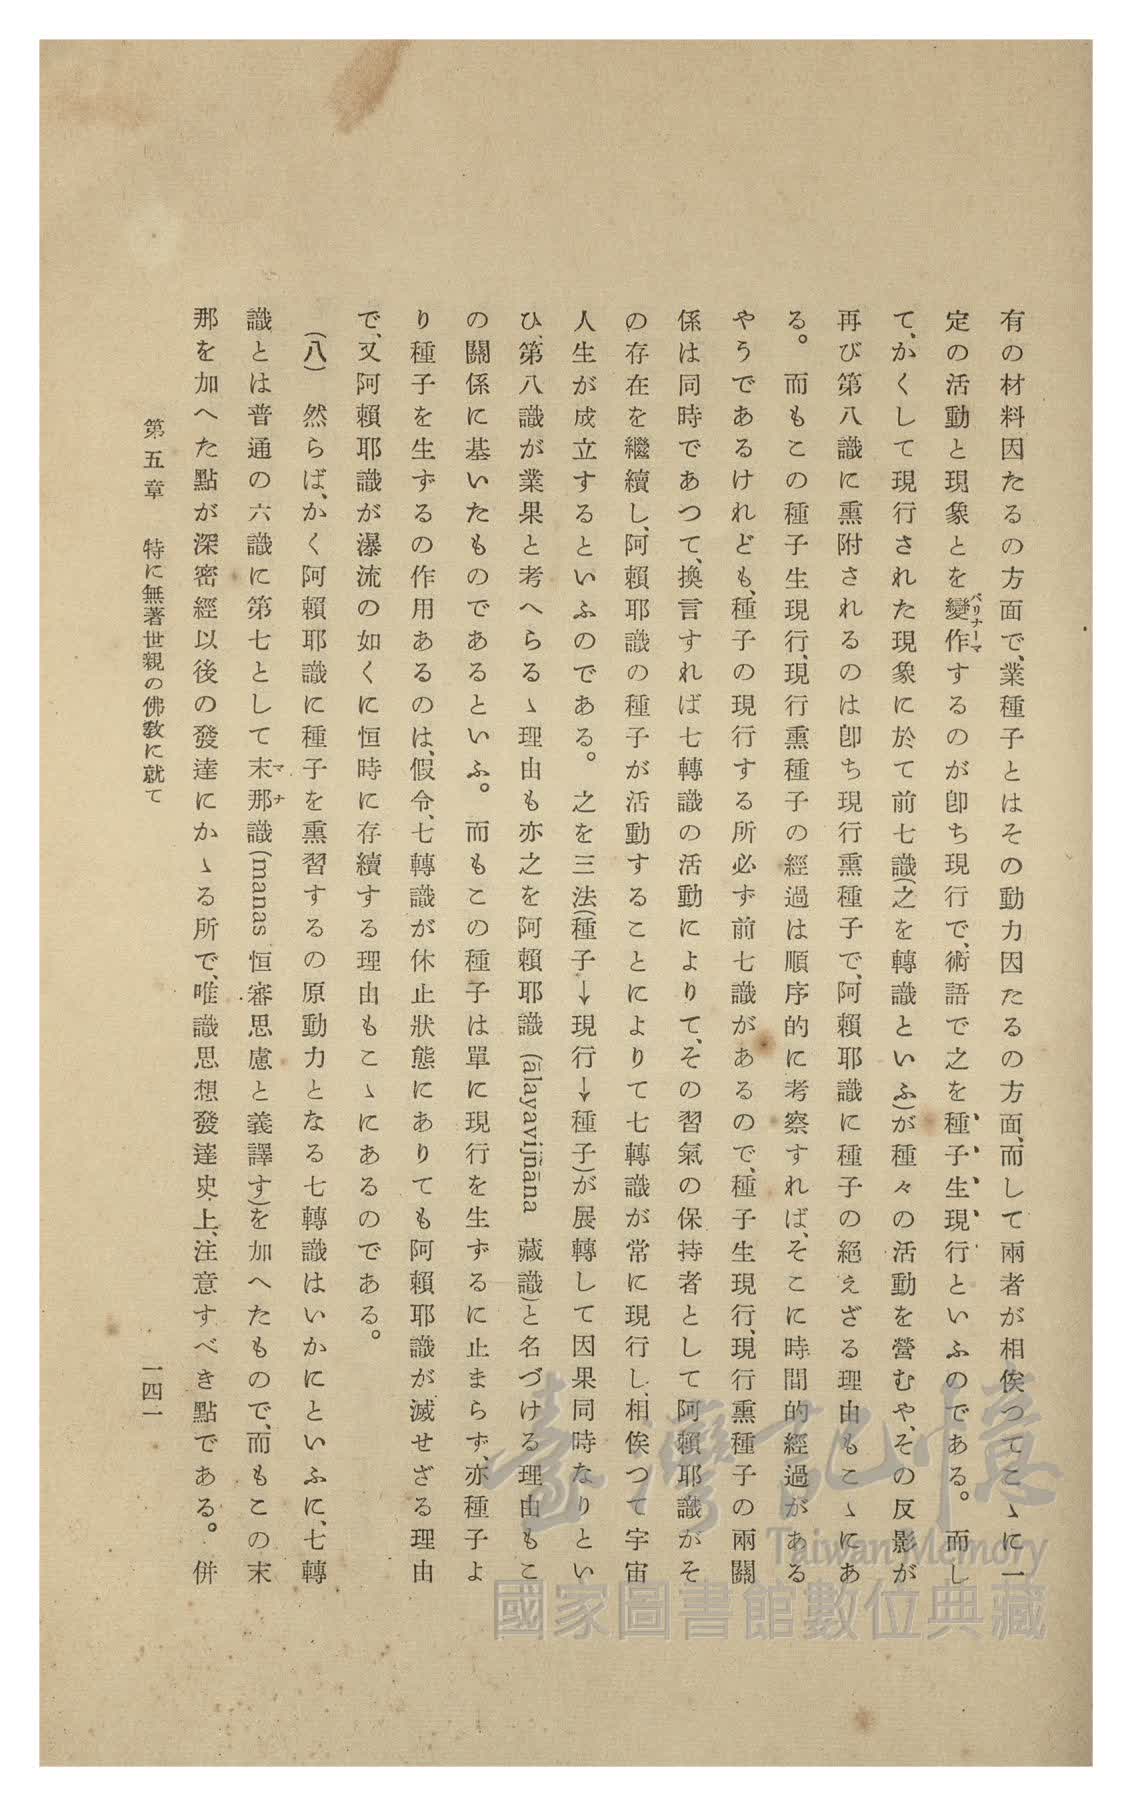 有の材料因たるの方面で、業種子とはその動力因たるの方面、而して兩者が相俟つてこゝに一
定の活動と現象とを變作するのが卽ち現行で、術語で之を種子生現行といふのである。而し
パリナーマ
て、かくして現行された現象に於て前七識(之を轉識といふ)が種々の活動を營むや、その反影が
再び第八識に熏附されるのは卽ち現行熏種子で、阿賴耶識に種子の絕えざる理由もこゝにあ
る。而もこの種子生現行、現行熏種子の經過は順序的に考察すれば、そこに時間的經過がある
やうであるけれども、種子の現行する所必ず前七識があるので、種子生現行、現行熏種子の兩關
係は同時であつて、換言すれば七轉識の活動によりて、その習氣の保持者として阿賴耶識がそ
の存在を繼續し、阿賴耶識の種子が活動することによりて七轉識が常に現行し、相俟つて宇宙
人生が成立するといふのである。之を三法(種子→現行→種子)が展轉して因果同時なりとい
ひ、第八識が業果と考へらるゝ理由も亦之を阿賴耶識(ālayavijñāna 藏識)と名づける理由もこ
の關係に基いたものであるといふ。而もこの種子は單に現行を生ずるに止まらず、亦種子よ
り種子を生ずるの作用あるのは、假令、七轉識が休止狀態にありても阿賴耶識が滅せざる理由
で、又阿賴耶識が瀑流の如くに恒時に存續する理由もこゝにあるのである。
(八)　然らば、かく阿賴耶識に種子を熏習するの原動力となる七轉識はいかにといふに、七轉
識とは普通の六識に第七として末那識(manas 恒審思慮と義譯す)を加へたもので、而もこの末
マナ
那を加へた點が深密經以後の發達にかゝる所で、唯識思想發達史上、注意すべき點である。併
第五章　特に無著世親の佛敎に就て
一四一
臺灣記憶
Taiwan Memory
國家圖書館數位典藏